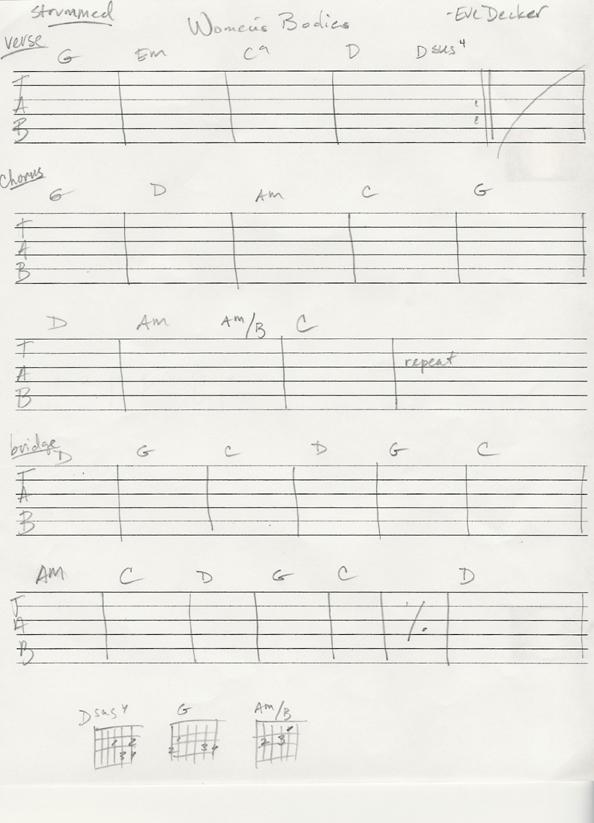 Strummed
Women's Bodies
-Eve Decker
verse
G Em C9 D Dsus4
T
A
B
Chorus
G D Am C G
T
A
B
D Am Am/B C
T
A
B
repeat
bridge
D G C D G C
T
A
B
Am C D G C D
T
A
B
Dsus4 G Am/B